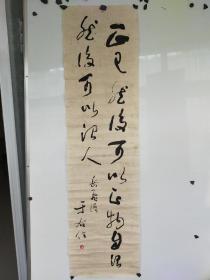 正己然後可以正物自治
然後可以治人
岳飛語
于右任